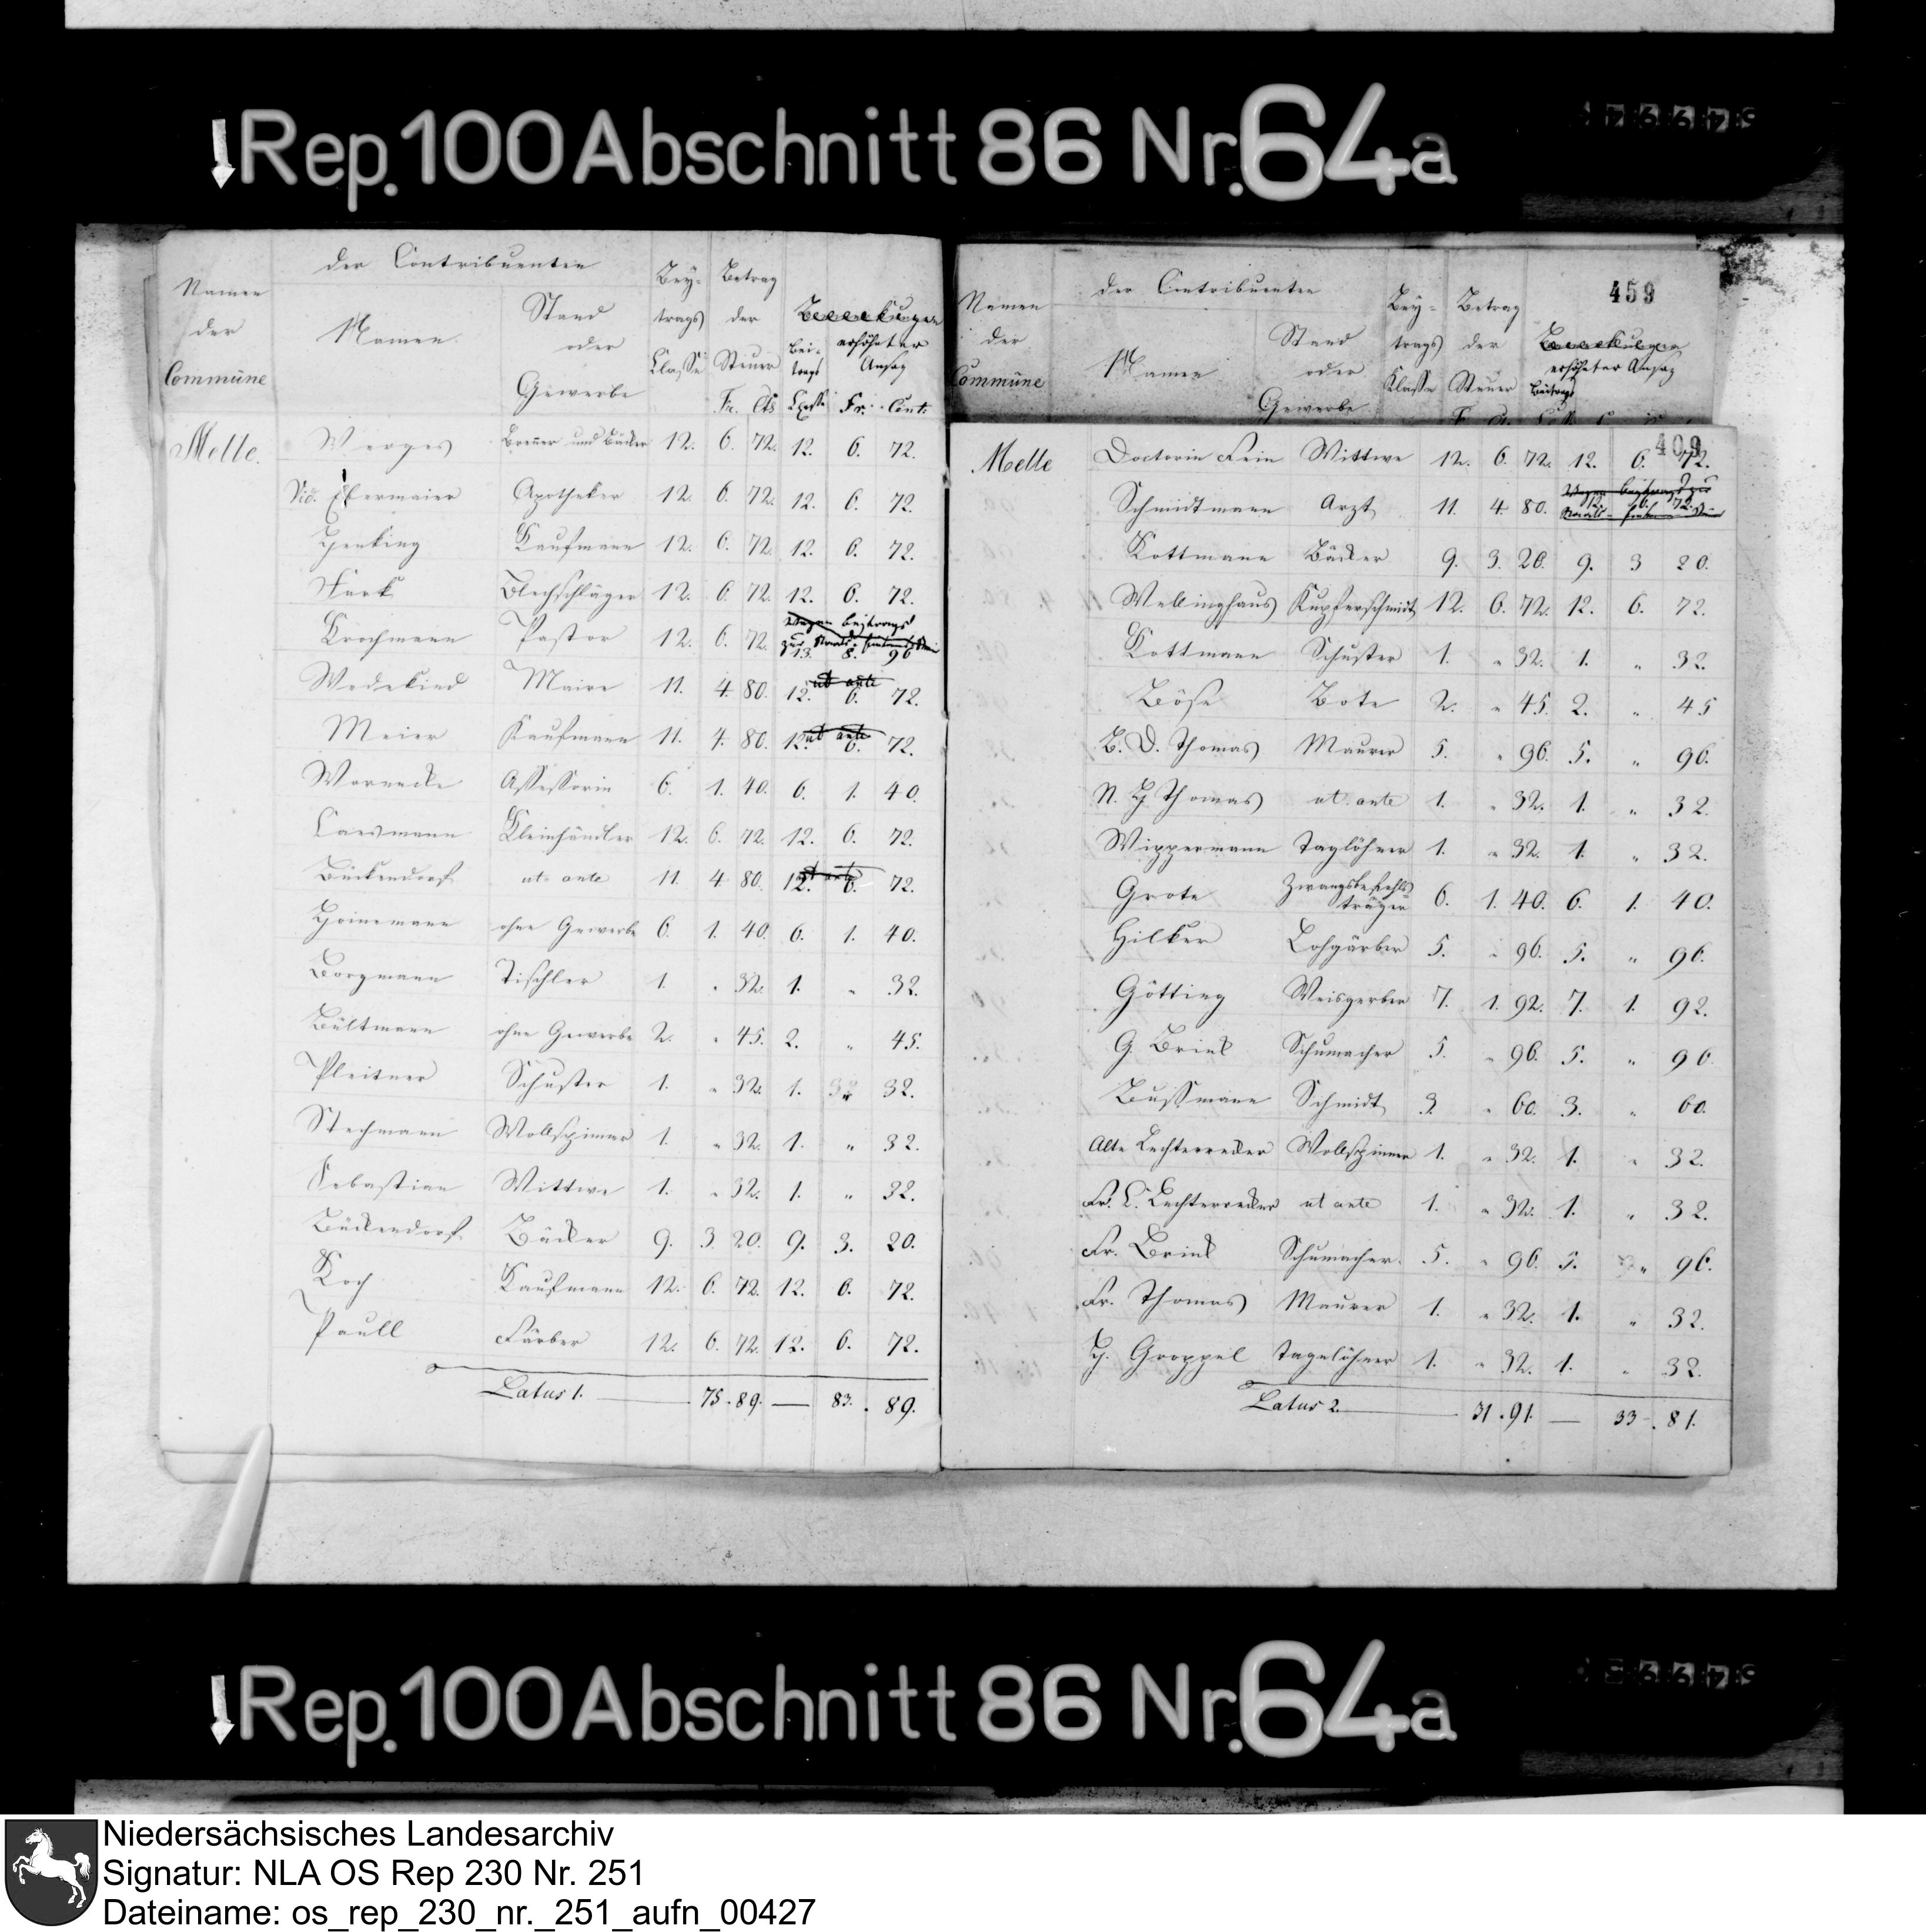 Rep. 100 Abschnitt 86 Nr. 64a
der Contribuenten
Namen der Commüne
Namen
Stand oder Gewerbe
Beytrags Classe
Betrag der Steuer Fr. Cts
Bemerkungen
erhöheter Ansaz
Beitrags Classe Fr. Cent:
Melle. Werges Brenner und Bäcker 12. 6. 72. 12. 6. 72.
Vid. Ebermaier Apotheker 12. 6. 72. 12. 6. 72.
Henking Kaufmann 12. 6. 72. 12. 6. 72.
Fark Blechschläger 12. 6. 72. 12. 6. 72.
wegen beytrags
zur
Krochmann Pastor 12. 6. 72. 13. 8. 96
Wedekind Maire 11. 4. 80. ut ante 12. 6. 72.
Meier Kaufmann 11. 4. 80. ut ante 12. 6. 72.
Warnecke Assessorin 6. 1. 40. 6. 1. 40.
Caesmann Kleinhändler 12. 6. 72. 12. 6. 72.
Bückendorf ut ante 11. 4 80. ut ante 12. 6. 72.
Heinemann ohne Gewerbe 6. 1. 40. 6. 1. 40.
Borgmann Tischler 1. " 32. 1. " 32.
Bültmann ohne Gewerbe 2. " 45. 2. " 45.
Pleitner Schuster 1. " 32. 1. " 32.
Stechmann Wollspinner 1. " 32. 1. " 32.
Sebastian Wittwe 1. " 32. 1. " 32.
Bückendorf Bäcker 9. 3. 20. 9. 3. 20.
Koch Kaufmann 12. 6. 72. 12. 6. 72.
Paull Färber 12. 6. 72. 12. 6. 72.
Latus 1. 75. 89. — 83. 89.
459
der Contribuenten
Namen der Commüne
Namen
Stand oder Gewerbe
Beytrags Klasse
Betrag der Steuer
Bemerkungen
erhöheter Ansaz
Beitrags
409
Melle Doctorin Fein Wittwe 12. 6. 72. 12. 6. 72.
wegen beytrags zur
Schmidtmann Arzt 11. 4. 80. 12. 6. 72.
Kottmann Bäcker 9. 3. 20. 9. 3 20.
Wellinghaus Kupferschmidt 12. 6. 72. 12. 6. 72.
Kottmann Schuster 1. " 32. 1. " 32.
Böse Bote 2. " 45. 2. " 45
B. D. Thomas Maurer 5. " 96. 5. " 96.
N. H. Thomas ut ante 1. " 32. 1. " 32.
Wippermann Taglöhner 1. " 32. 1. " 32.
Grote Zwangsbefehlsträger 6. 1. 40. 6. 1. 40.
Hilker Lohgärber 5. " 96. 5. " 96.
Götting Weisgerber 7. 1. 92. 7. 1. 92.
G. Brink Schumacher 5. " 96. 5. " 96
Bussmann Schmidt 3. " 60. 3. " 60.
Alte Lechterrecker Wollspinner 1. " 32. 1. " 32.
Fr. C. Lechterrecker ut ante 1. " 32. 1. " 32.
Fr. Brink Schumacher. 5. " 96. 5. " 96.
Fr. Thomas Maurer 1. " 32. 1. " 32.
H. Groppel Tagelöhner 1. " 32. 1. " 32.
Latus 2. 31. 91. — 33. 81.
Rep. 100 Abschnitt 86 Nr. 64a
Niedersächsisches Landesarchiv
Signatur: NLA OS Rep 230 Nr. 251
Dateiname: os_rep_230_nr._251_aufn_00427